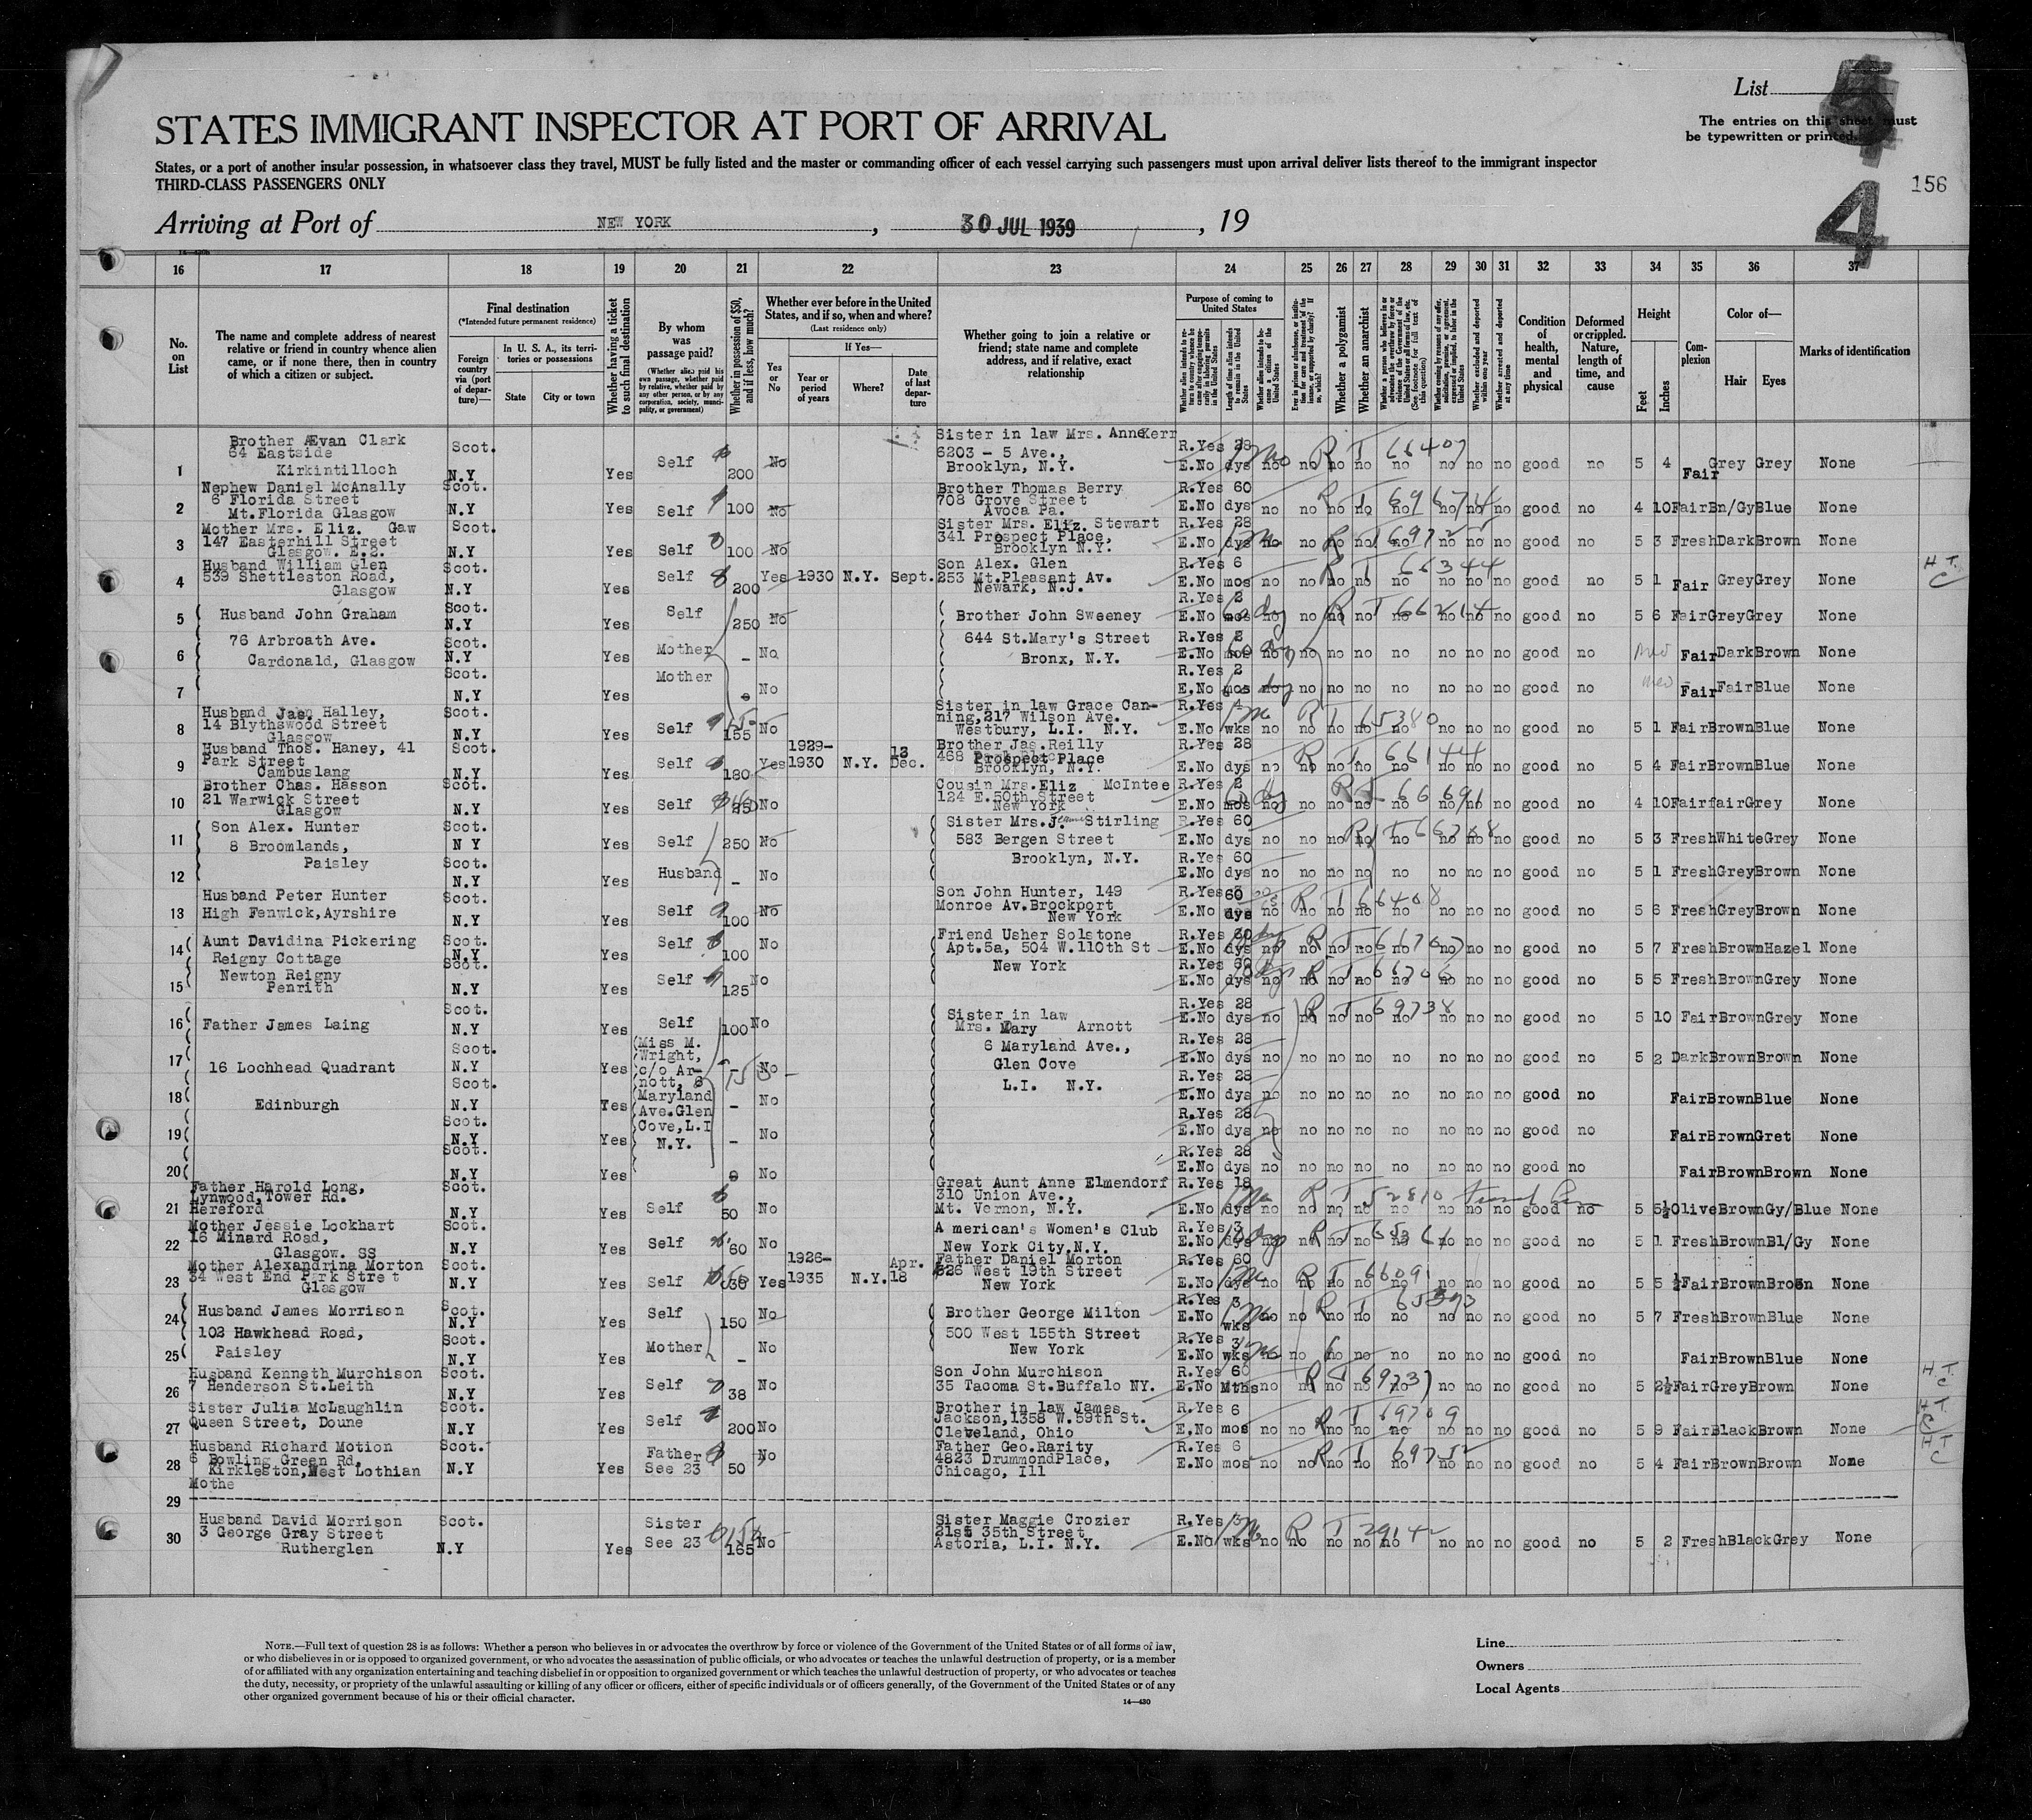 List
5
4
The entries on this sheet must
be typewritten or printed.
156
STATES IMMIGRANT INSPECTOR AT PORT OF ARRIVAL
States, or a port of another insular possession, in whatsoever class they travel, MUST be fully listed and the master or commanding officer of each vessel carrying such passengers must upon arrival deliver lists thereof to the immigrant inspector
THIRD-CLASS PASSENGERS ONLY
Arriving at Port of NEW YORK, 30 JUL 1939, 19
16 17 18 19 20 21 22 23 24 25 26 27 28 29 30 31 32 33 34 35 36 37
No. on List
The name and complete address of nearest relative or friend in country whence alien came, or if none there, then in country of which a citizen or subject.
Final destination
(*Intended future permanent residence)
Foreign country via (port of departure)—
In U. S. A., its territories or possessions
State
City or town
Whether having a ticket to such final destination
By whom was passage paid?
(Whether alien paid his own passage, whether paid by relative, whether paid by any other person, or by any corporation, society, municipality, or government)
Whether in possession of $50, and if less, how much?
Whether ever before in the United States, and if so, when and where?
(Last residence only)
Yes or No
If Yes—
Year or period of years
Where?
Date of last departure
Whether going to join a relative or friend; state name and complete address, and if relative, exact relationship
Purpose of coming to United States
Length of time alien intends to remain in the United States
Whether alien intends to become a citizen of the United States
Whether a polygamist
Whether an anarchist
Whether excluded and deported within one year
Whether arrested and deported at any time
Condition of health, mental and physical
Deformed or crippled. Nature, length of time, and cause
Height
Feet
Inches
Complexion
Color of—
Hair
Eyes
Marks of identification
1 Brother Ævan Clark 64 Eastside Kirkintilloch Scot. N.Y Yes Self 200 No Sister in law Mrs. Anne Kerr 6203 - 5 Ave., Brooklyn, N.Y. R.Yes 28 E.No dys no no no no no no no no good no 5 4 Fair Grey Grey None
RT 66407
2 Nephew Daniel McAnally 6 Florida Street Mt.Florida Glasgow Scot. N.Y Yes Self 100 No Brother Thomas Berry 708 Grove Street Avoca Pa. R.Yes 60 E.No dys no no no no no no no no good no 4 10 Fair Bn/Gy Blue None
3 Mother Mrs. Eliz. Gaw 147 Easterhill Street Glasgow. E.2. Scot. N.Y Yes Self 100 No Sister Mrs. Eliz. Stewart 341 Prospect Place, Brooklyn N.Y. R.Yes 28 E.No dys no no no no no no no no good no 5 3 Fresh Dark Brown None
4 Husband William Glen 539 Shettleston Road, Glasgow Scot. N.Y Yes Self 200 Yes 1930 N.Y. Sept. Son Alex. Glen 253 Mt.Pleasant Av. Newark, N.J. R.Yes 6 E.No mos no no no no no no no no good no 5 1 Fair Grey Grey None
RT 66344
5 Husband John Graham Scot. N.Y Yes Self 250 No Brother John Sweeney R.Yes 2 E.No mos no no no no no no no no good no 5 6 Fair Grey Grey None
RT 66214
6 76 Arbroath Ave. Cardonald, Glasgow Scot. N.Y Yes Mother - No 644 St.Mary's Street Bronx, N.Y. R.Yes 2 E.No mos no no no no no no no no good no Fair Dark Brown None
7 Scot. N.Y Yes Mother No R.Yes 2 E.No mos no no no no no no no no good no Fair Fair Blue None
8 Husband Jas. Halley, 14 Blythswood Street Glasgow Scot. N.Y Yes Self 155 No Sister in law Grace Canning, 217 Wilson Ave. Westbury, L.I. N.Y. R.Yes 4 E.No wks no no no no no no no no good no 5 1 Fair Brown Blue None
RT 65380
9 Husband Thos. Haney, 41 Park Street Cambuslang Scot. N.Y Yes Self 180 Yes 1929-1930 N.Y. 12 Dec. Brother Jas.Reilly 468 Prospect Place Brooklyn, N.Y. R.Yes 28 E.No dys no no no no no no no no good no 5 4 Fair Brown Blue None
RT 66144
10 Brother Chas. Hasson 21 Warwick Street Glasgow Scot. N.Y Yes Self 25 No Cousin Mrs.Eliz McIntee 124 E.50th Street New York R.Yes 2 E.No mos no no no no no no no no good no 4 10 Fair fair Grey None
RT 66691
11 Son Alex. Hunter 8 Broomlands, Scot. N Y Yes Self 250 No Sister Mrs.J. Stirling 583 Bergen Street R.Yes 60 E.No dys no no no no no no no no good no 5 3 Fresh White Grey None
12 Paisley Scot. N.Y Yes Husband - No Brooklyn, N.Y. R.Yes 60 E.No dys no no no no no no no no good no 5 1 Fresh Grey Brown None
13 Husband Peter Hunter High Fenwick,Ayrshire Scot. N.Y Yes Self 100 No Son John Hunter, 149 Monroe Av.Brockport New York R.Yes 60 E.No dys no no no no no no no no good no 5 6 Fresh Grey Brown None
RT 66408
14 Aunt Davidina Pickering Reigny Cottage Scot. N.Y Yes Self 100 No Friend Usher Solstone Apt.5a, 504 W.110th St R.Yes 60 E.No dys no no no no no no no no good no 5 7 Fresh Brown Hazel None
RT 66707
15 Newton Reigny Penrith Scot. N.Y Yes Self 125 No New York R.Yes 60 E.No dys no no no no no no no no good no 5 5 Fresh Brown Grey None
RT 66706
16 Father James Laing Scot. N.Y Yes Self 100 No Sister in law Mrs. Mary Arnott R.Yes 28 E.No dys no no no no no no no no good no 5 10 Fair Brown Grey None
RT 69738
17 16 Lochhead Quadrant Scot. N.Y Yes Miss M. Wright, c/o Arnott, 6 - No 6 Maryland Ave., Glen Cove R.Yes 28 E.No dys no no no no no no no no good no 5 2 Dark Brown Brown None
18 Edinburgh Scot. N.Y Yes Maryland Ave.Glen - No L.I. N.Y. R.Yes 28 E.No dys no no no no no no no no good no Fair Brown Blue None
19 Scot. N.Y Yes Cove,L.I N.Y. - No R.Yes 28 E.No dys no no no no no no no no good no Fair Brown Gret None
20 Scot. N.Y Yes No R.Yes 28 E.No dys no no no no no no no no good no Fair Brown Brown None
21 Father Harold Long, Lynwood,Tower Rd. Hereford Scot. N.Y Yes Self 50 No Great Aunt Anne Elmendorf 310 Union Ave., Mt. Vernon, N.Y. R.Yes 18 E.No dys no no no no no no no no good no 5 5½ Olive Brown Gy/Blue None
RT 52810
22 Mother Jessie Lockhart 16 Minard Road, Glasgow. SS Scot. N.Y Yes Self 60 No American's Women's Club New York City,N.Y. R.Yes 3 E.No dys no no no no no no no no good no 5 1 Fresh Brown Bl/Gy None
23 Mother Alexandrina Morton 34 West End Park Stre t Glasgow Scot. N.Y Yes Self Yes 1926-1935 N.Y. Apr. 18 Father Daniel Morton 626 West 19th Street New York R.Yes 60 E.No dys no no no no no no no no good no 5 5½ Fair Brown None
RT 66091
24 Husband James Morrison Scot. N.Y Yes Self 150 No Brother George Milton R.Yes 3 E.No wks no no no no no no no good no 5 7 Fresh Brown Blue None
25 102 Hawkhead Road, Paisley Scot. N.Y Yes Mother - No 500 West 155th Street New York R.Yes 3 E.No wks no no no no no no no good no Fair Brown Blue None
26 Husband Kenneth Murchison 7 Henderson St.Leith Scot. N.Y Yes Self 38 No Son John Murchison 35 Tacoma St.Buffalo NY. R.Yes 6 E.No Mths no no no no no no no no good no 5 2½ Fair Grey Brown None
RT 69737
27 Sister Julia McLaughlin Queen Street, Doune Scot. N.Y Yes Self 200 No Brother in law James Jackson,1358 W.59th St. Cleveland, Ohio R.Yes 6 E.No mos no no no no no no no no good no 5 9 Fair Black Brown None
RT 69709
28 Husband Richard Motion 6 Bowling Green Rd, Kirkleston,West Lothian Scot. N.Y Yes Father See 23 50 No Father Geo.Rarity 4823 DrummondPlace, Chicago, Ill R.Yes 6 E.No mos no no no no no no no no good no 5 4 Fair Brown Brown None
RT 69752
29 Mothe
30 Husband David Morrison 3 George Gray Street Rutherglen Scot. N.Y Yes Sister See 23 165 No Sister Maggie Crozier 35th Street Astoria, L.I. N.Y. R.Yes 3 E.No wks no no no no no no no no good no 5 2 Fresh Black Grey None
RT 29142
NOTE.—Full text of question 28 is as follows: Whether a person who believes in or advocates the overthrow by force or violence of the Government of the United States or of all forms of law,
or who disbelieves in or is opposed to organized government, or who advocates the assassination of public officials, or who advocates or teaches the unlawful destruction of property, or is a member
of or affiliated with any organization entertaining and teaching disbelief in or opposition to organized government or which teaches the unlawful destruction of property, or who advocates or teaches
the duty, necessity, or propriety of the unlawful assaulting or killing of any officer or officers, either of specific individuals or of officers generally, of the Government of the United States or of any
other organized government because of his or their official character.
14—430
Line
Owners
Local Agents